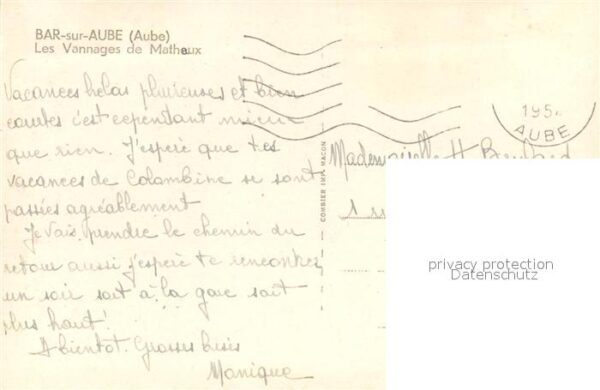 BAR-sur-AUBE (Aube)
Les Vannages de Matheux
Vacances helas pluvieuses et bien
courtes c'est cependant mieux
que rien. J'espère que tes
vacances de Colombine se sont
passées agréablement
Je vais prendre le chemin du
retour aussi j'espère te rencontrer
un soir soit à la gare soit
plus haut!
A bientot. Grosses bises
Monique
COMBIER IMP. MACON
195
AUBE
Mademoiselle H
1
privacy protection
Datenschutz